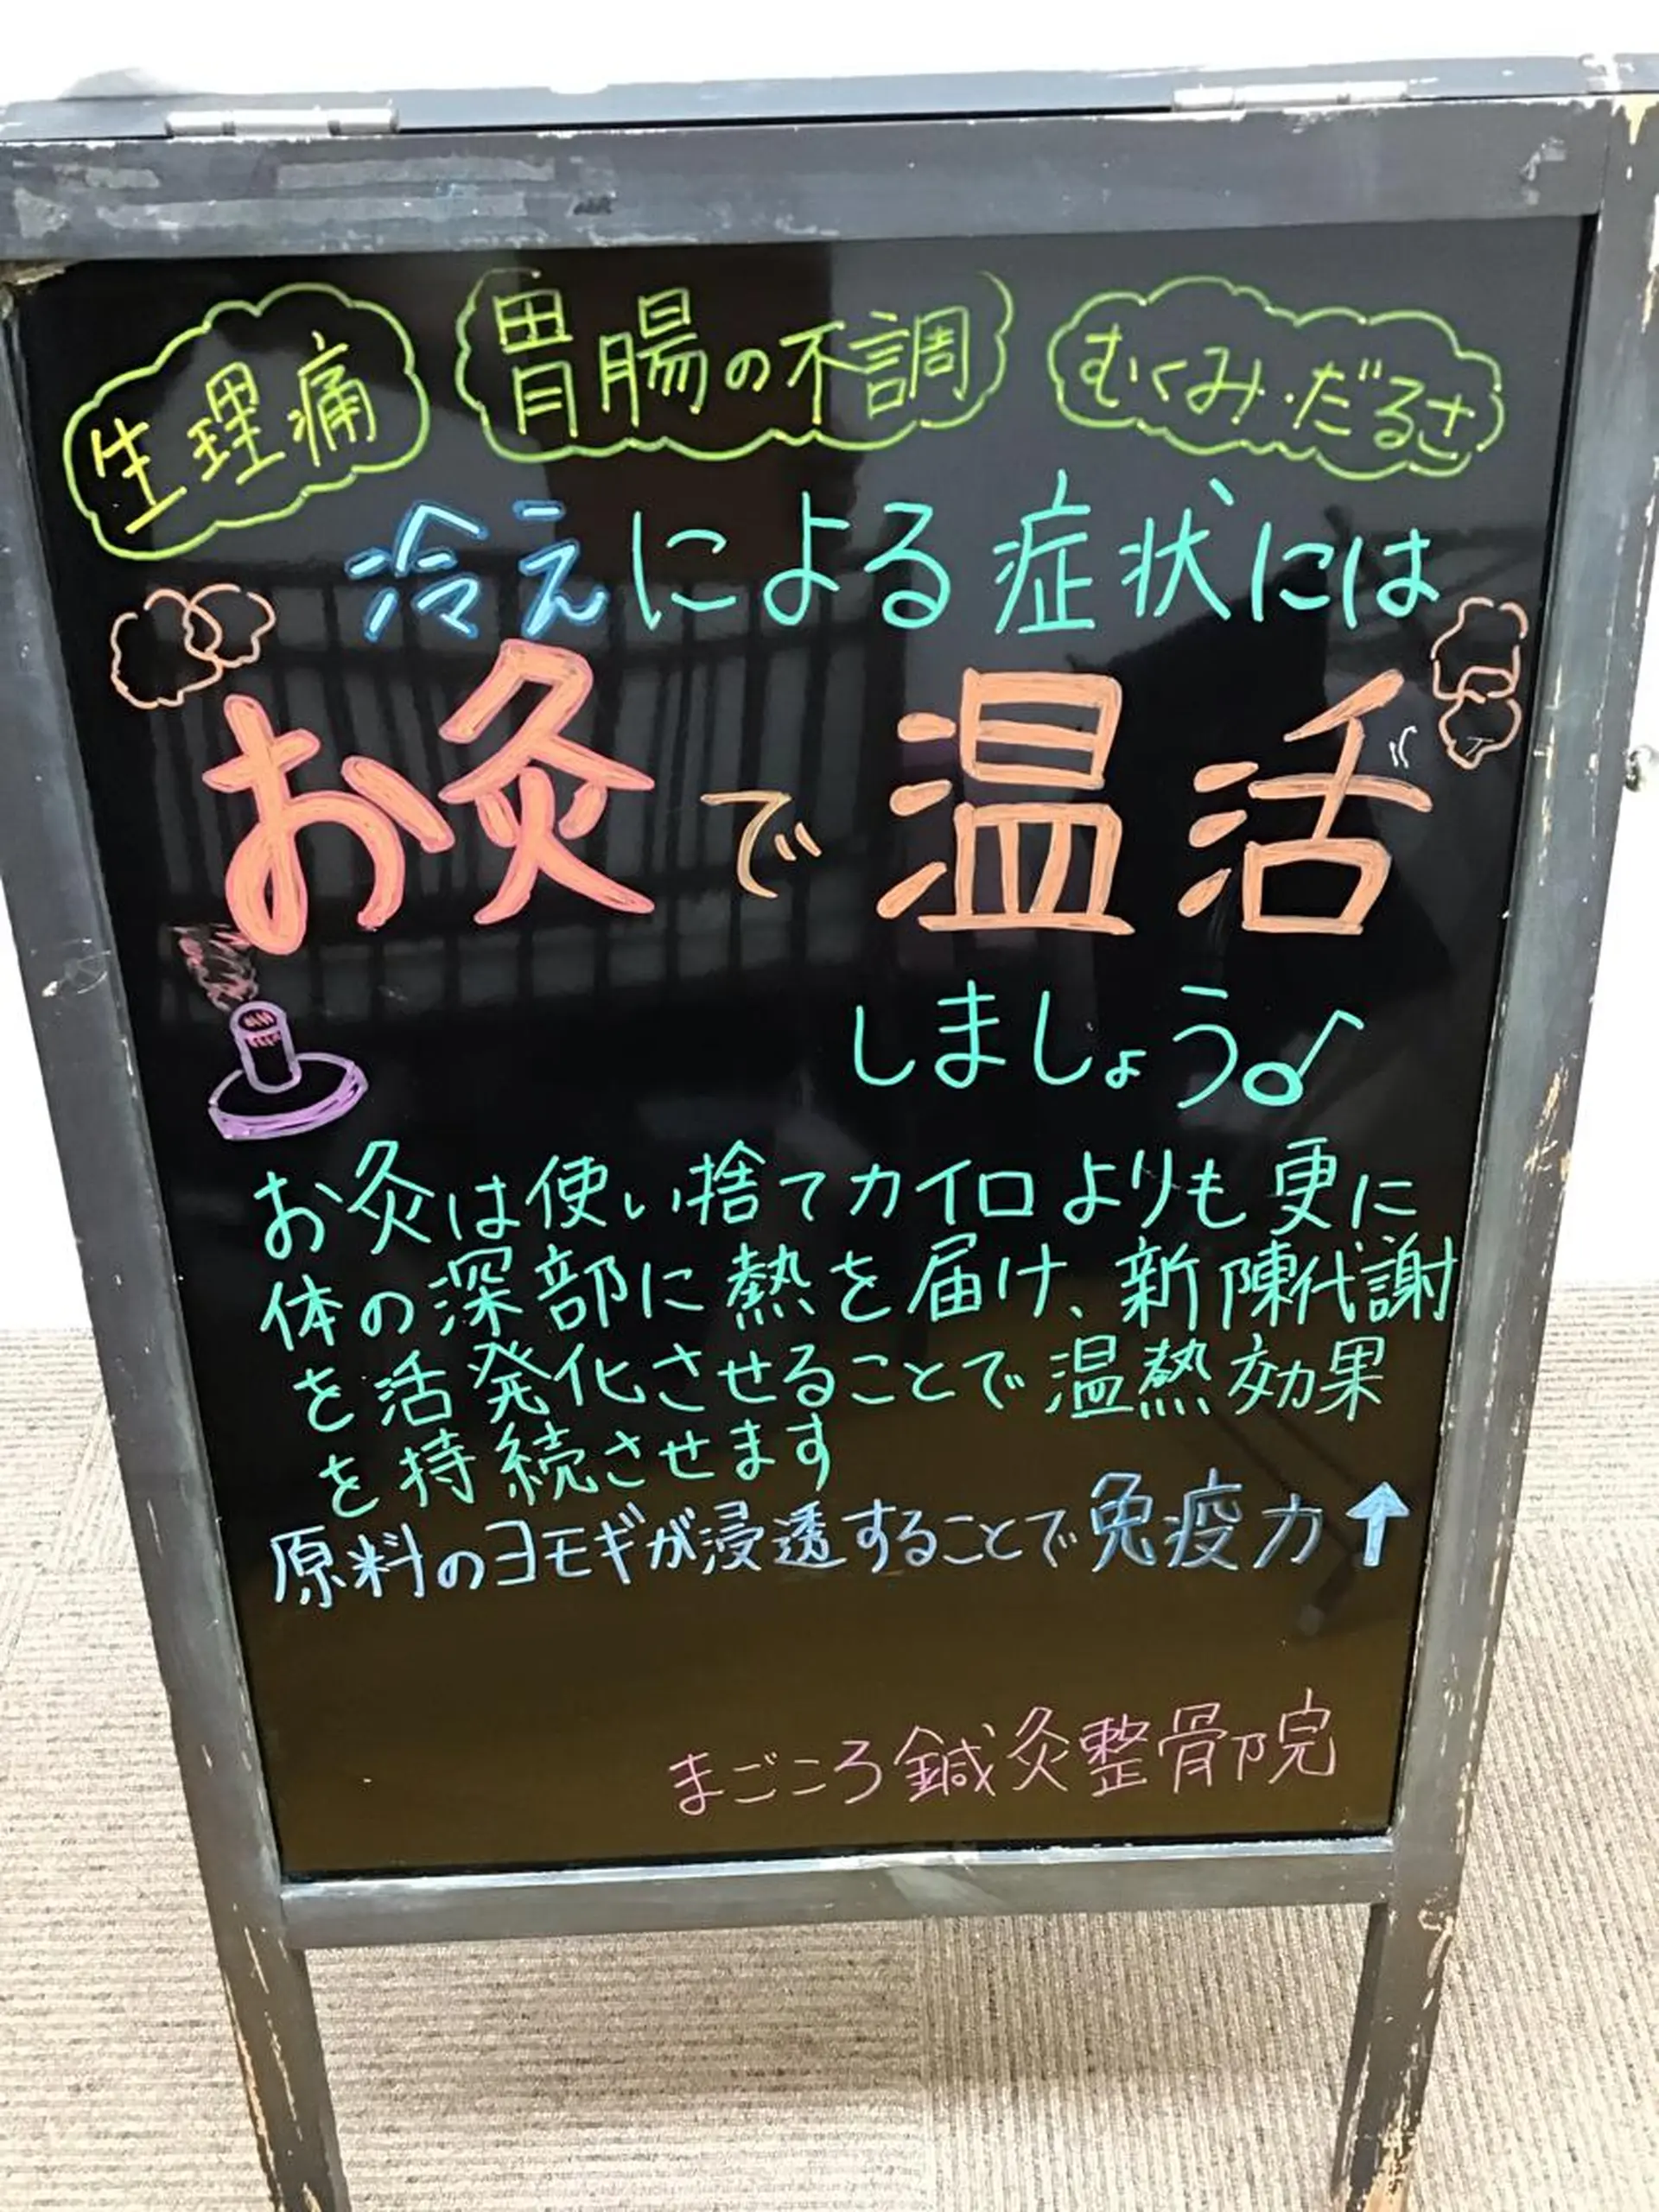 生理痛 胃腸の不調 むくみ・だるさ
冷えによる症状には
お灸で温活
しましょう♪
お灸は使い捨てカイロよりも更に
体の深部に熱を届け、新陳代謝
を活発化させることで温熱効果
を持続させます
原料のヨモギが浸透することで免疫力↑
まごころ鍼灸整骨院